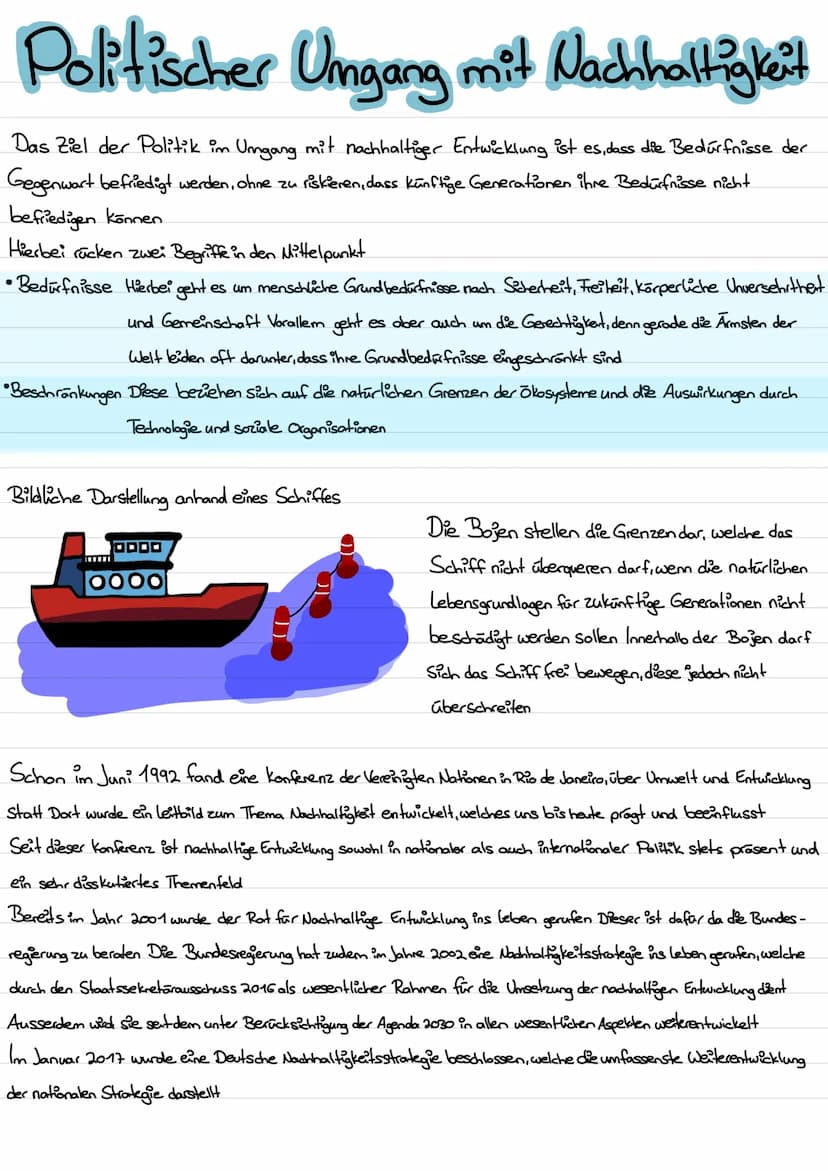 Politischer Umgang mit Nachhaltigkeit
Das Ziel der Politik im Umgang mit nachhaltiger Entwicklung ist es, dass die Bedürfnisse der
Gegenwart befriedigt werden, ohne zu riskieren, dass künftige Generationen ihre Bedürfnisse nicht
befriedigen können
Hierbei rücken zwei Begriffe in den Mittelpunkt
• Bedürfnisse Hierbei geht es um menschliche Grundbedürfnisse nach Sicherheit, Freiheit, körperliche Unversehrtheit
und Gemeinschaft Vorallem geht es aber auch um die Gerechtigkeit, denn gerade die Ärmsten der
Welt leiden oft darunter, dass ihre Grundbedürfnisse eingeschränkt sind
• Beschränkungen Diese beziehen sich auf die natürlichen Grenzen der Ökosysteme und die Auswirkungen durch
Technologie und soziale Organisationen
Bildliche Darstellung anhand eines Schiffes
Die Bojen stellen die Grenzen dar, welche das
Schiff nicht überqueren darf, wenn die natürlichen
Lebensgrundlagen für zukünftige Generationen nicht
beschädigt werden sollen Innerhalb der Bojen darf
sich das Schiff frei bewegen, diese jedoch nicht
überschreiten
Schon im Juni 1992 fand eine Konferenz der Vereinigten Nationen in Rio de Janeiro, über Umwelt und Entwicklung
statt Dort wurde ein Leitbild zum Thema Nachhaltigkeit entwickelt, welches uns bis heute prägt und beeinflusst
Seit dieser Konferenz ist nachhaltige Entwicklung sowohl in nationaler als auch internationaler Politik stets präsent und
ein sehr disskutiertes Themenfeld
Bereits im Jahr 2001 wurde der Rat für Nachhaltige Entwicklung ins Leben gerufen Dieser ist dafür da die Bundes-
regierung zu beraten Die Bundesregierung hat zudem im Jahre 2002 eine Nachhaltigkeitsstrategie ins Leben gerufen, welche
durch den Staatssekretärausschuss 2016 als wesentlicher Rahmen für die Umsetzung der nachhaltigen Entwicklung dient
Ausserdem wird sie seitdem unter Berücksichtigung der Agenda 2030 in allen wesentlichen Aspekten weiterentwickelt
Im Januar 2017 wurde eine Deutsche Nachhaltigkeitsstrategie beschlossen, welche die umfassenste Weiterentwicklung
der nationalen Strategie darstellt